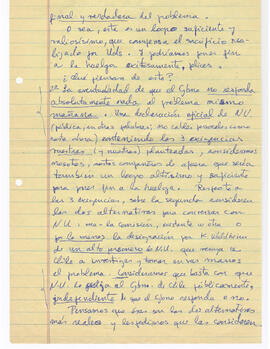 final y verdadera del problema.
O sea, éste es un logro suficiente y
valiosísimo, que compensa el sacrificio rea-
lizado por Uds. Y podríamos poner fin
a la huelga exitosamente, felices.
¿Qué piensan de esto?
2º La eventualidad de que el Gbno no responda
absolutamente nada al problema mismo
mañana. Una declaración oficial de N.U.
(pública, en otras palabras; no cabe proceder como
hasta ahora) conteniendo las 3 exigencias
nuestras (y vuestras) planteadas, consideramos
nosotros, estos compañeros de afuera que sería
también un logro altísimo y suficiente
para poner fin a la huelga. Respecto a
las 3 exigencias, sobre la segunda considerar
las dos alternativas para conversar con
N.U.: una - la comisión, existente u otra o
por lo menos la designación por K. Waldheim
de un alto personero de N.U. que venga a
Chile a investigar y tomar en sus manos
el problema. Consideramos que basta con que
N.U. lo exija al Gbno. de Chile públicamente,
independiente de que el Gbno responda o no.
Pensamos que esas son las dos alternativas
más reales y les pedimos que las consideren